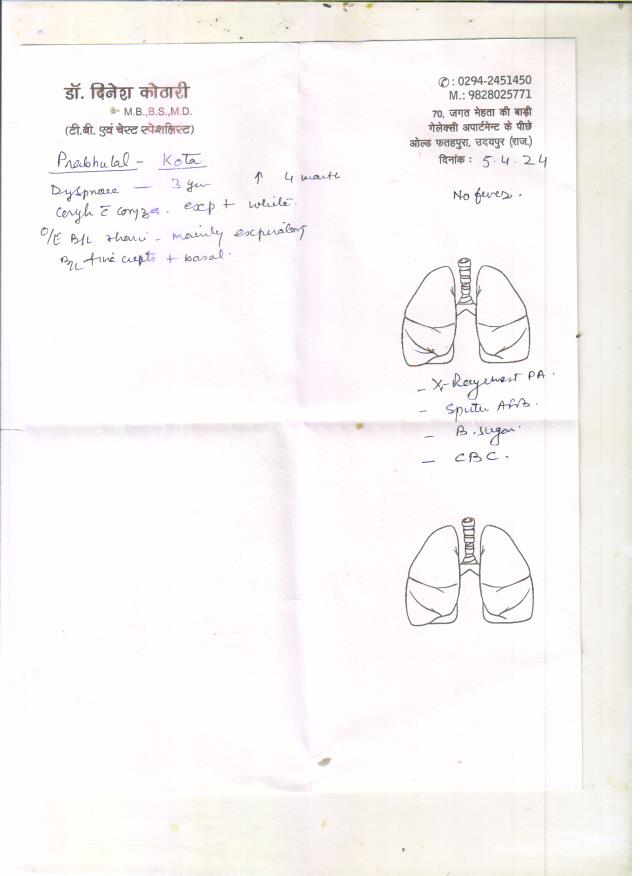 डॉ. दिनेश कोठारी
M.B.,B.S.,M.D.
(टी.बी. एवं चेस्ट स्पेशलिस्ट)
✆ : 0294-2451450
M.: 9828025771
70, जगत मेहता की बाड़ी
गेलेक्सी अपार्टमेन्ट के पीछे
ओल्ड फतहपुरा, उदयपुर (राज.)
दिनांक : 5.4.24
Prabhulal - Kota
Dyspnoea — 3 year ↑ 4 month
No fever.
Cough c̄ coryza. exp + white.
O/E B/L rhonchi - mainly expiratory
B/L fine crepts + basal.
- X-Ray chest PA.
- Sputum AFB.
- B. sugar.
- CBC.